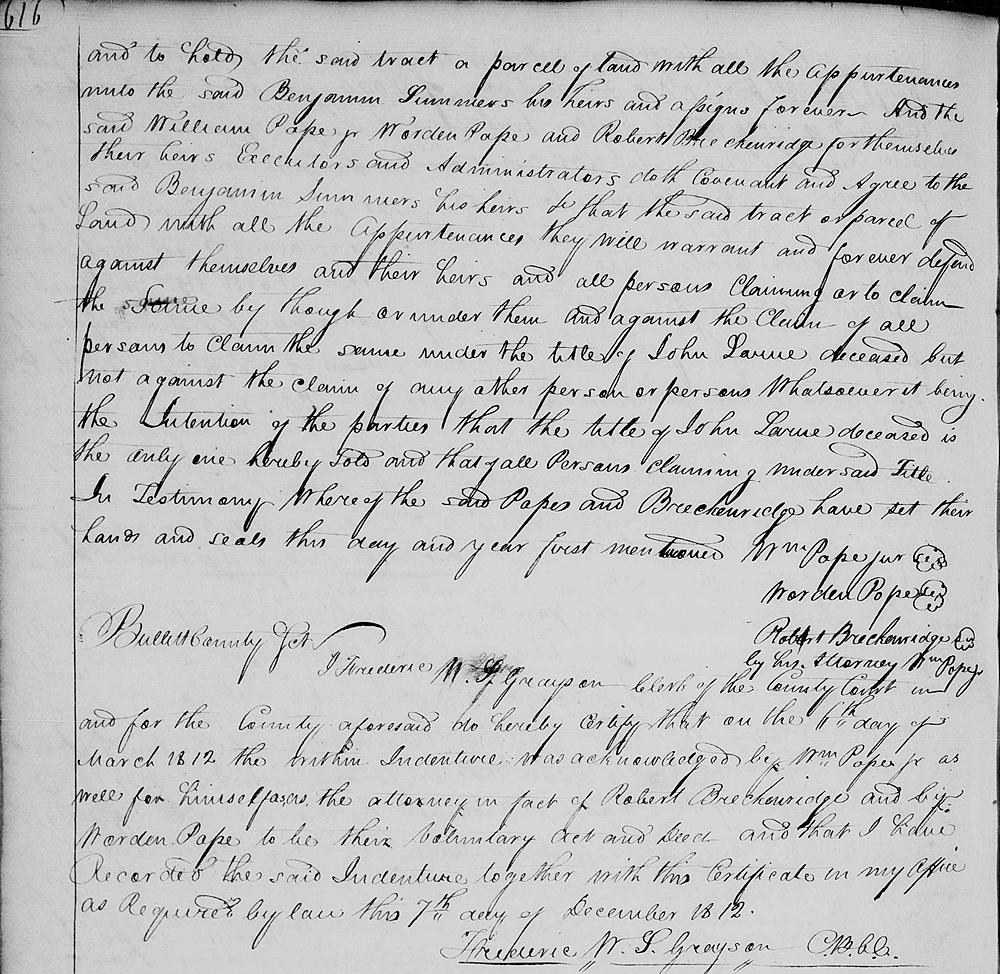 616
and to hold the said tract a parcel of Land with all the Appurtenances
unto the said Benjamin Summers his heirs and assigns forever And the
said William Pope jr Worden Pope and Robert Breckenridge for themselves
their heirs Executors and Administrators doth Covenant and Agree to the
said Benjamin Summers his heirs &c that the said tract or parcel of
Land with all the Appurtenances they will warrant and forever defend
against themselves and their heirs and all persons Claiming or to claim
the same by though or under them and against the Claim of all
persons to Claim the same under the title of John Larue deceased but
not against the claim of any other person or persons Whatsoever it being
the Intention of the parties that the title of John Larue deceased is
the only one hereby Sold and that of all Persons claiming under said Title.
In Testimony Whereof the said Popes and Breckenridge have set their
hands and seals this day and year first mentioned Wm Pope junr
Worden Pope
Robert Breckenridge
by his Attorney Wm Pope jr
Bullitt County Sct
I Frederic W. S. Grayson Clerk of the County Court in
and for the County aforesaid do hereby Certify that on the 6th day of
March 1812 the within Indenture was acknowledged by Wm Pope jr as
well for himself as the attorney in fact of Robert Breckenridge and by
Worden Pope to be their Voluntary Act and Deed and that I have
Recorded the said Indenture together with this Certificate in my Office
as Required by law this 7th day of December 1812.
Frederic W. S. Grayson C.B.C.C.